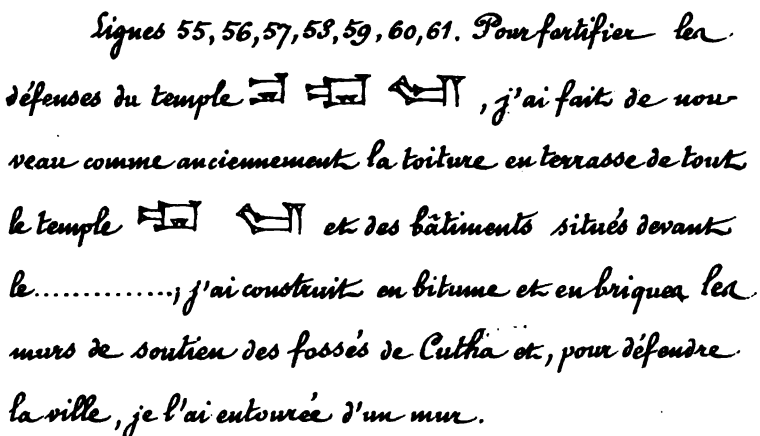 Lignes 55, 56, 57, 58, 59, 60, 61. Pour fortifier les
défenses du temple , j'ai fait de nou-
veau comme anciennement la toiture en terrasse de tout
le temple et des bâtiments situés devant
le..............; j'ai construit en bitume et en briques les
murs de soutien des fossés de Cutha et, pour défendre
la ville, je l'ai entourée d'un mur.